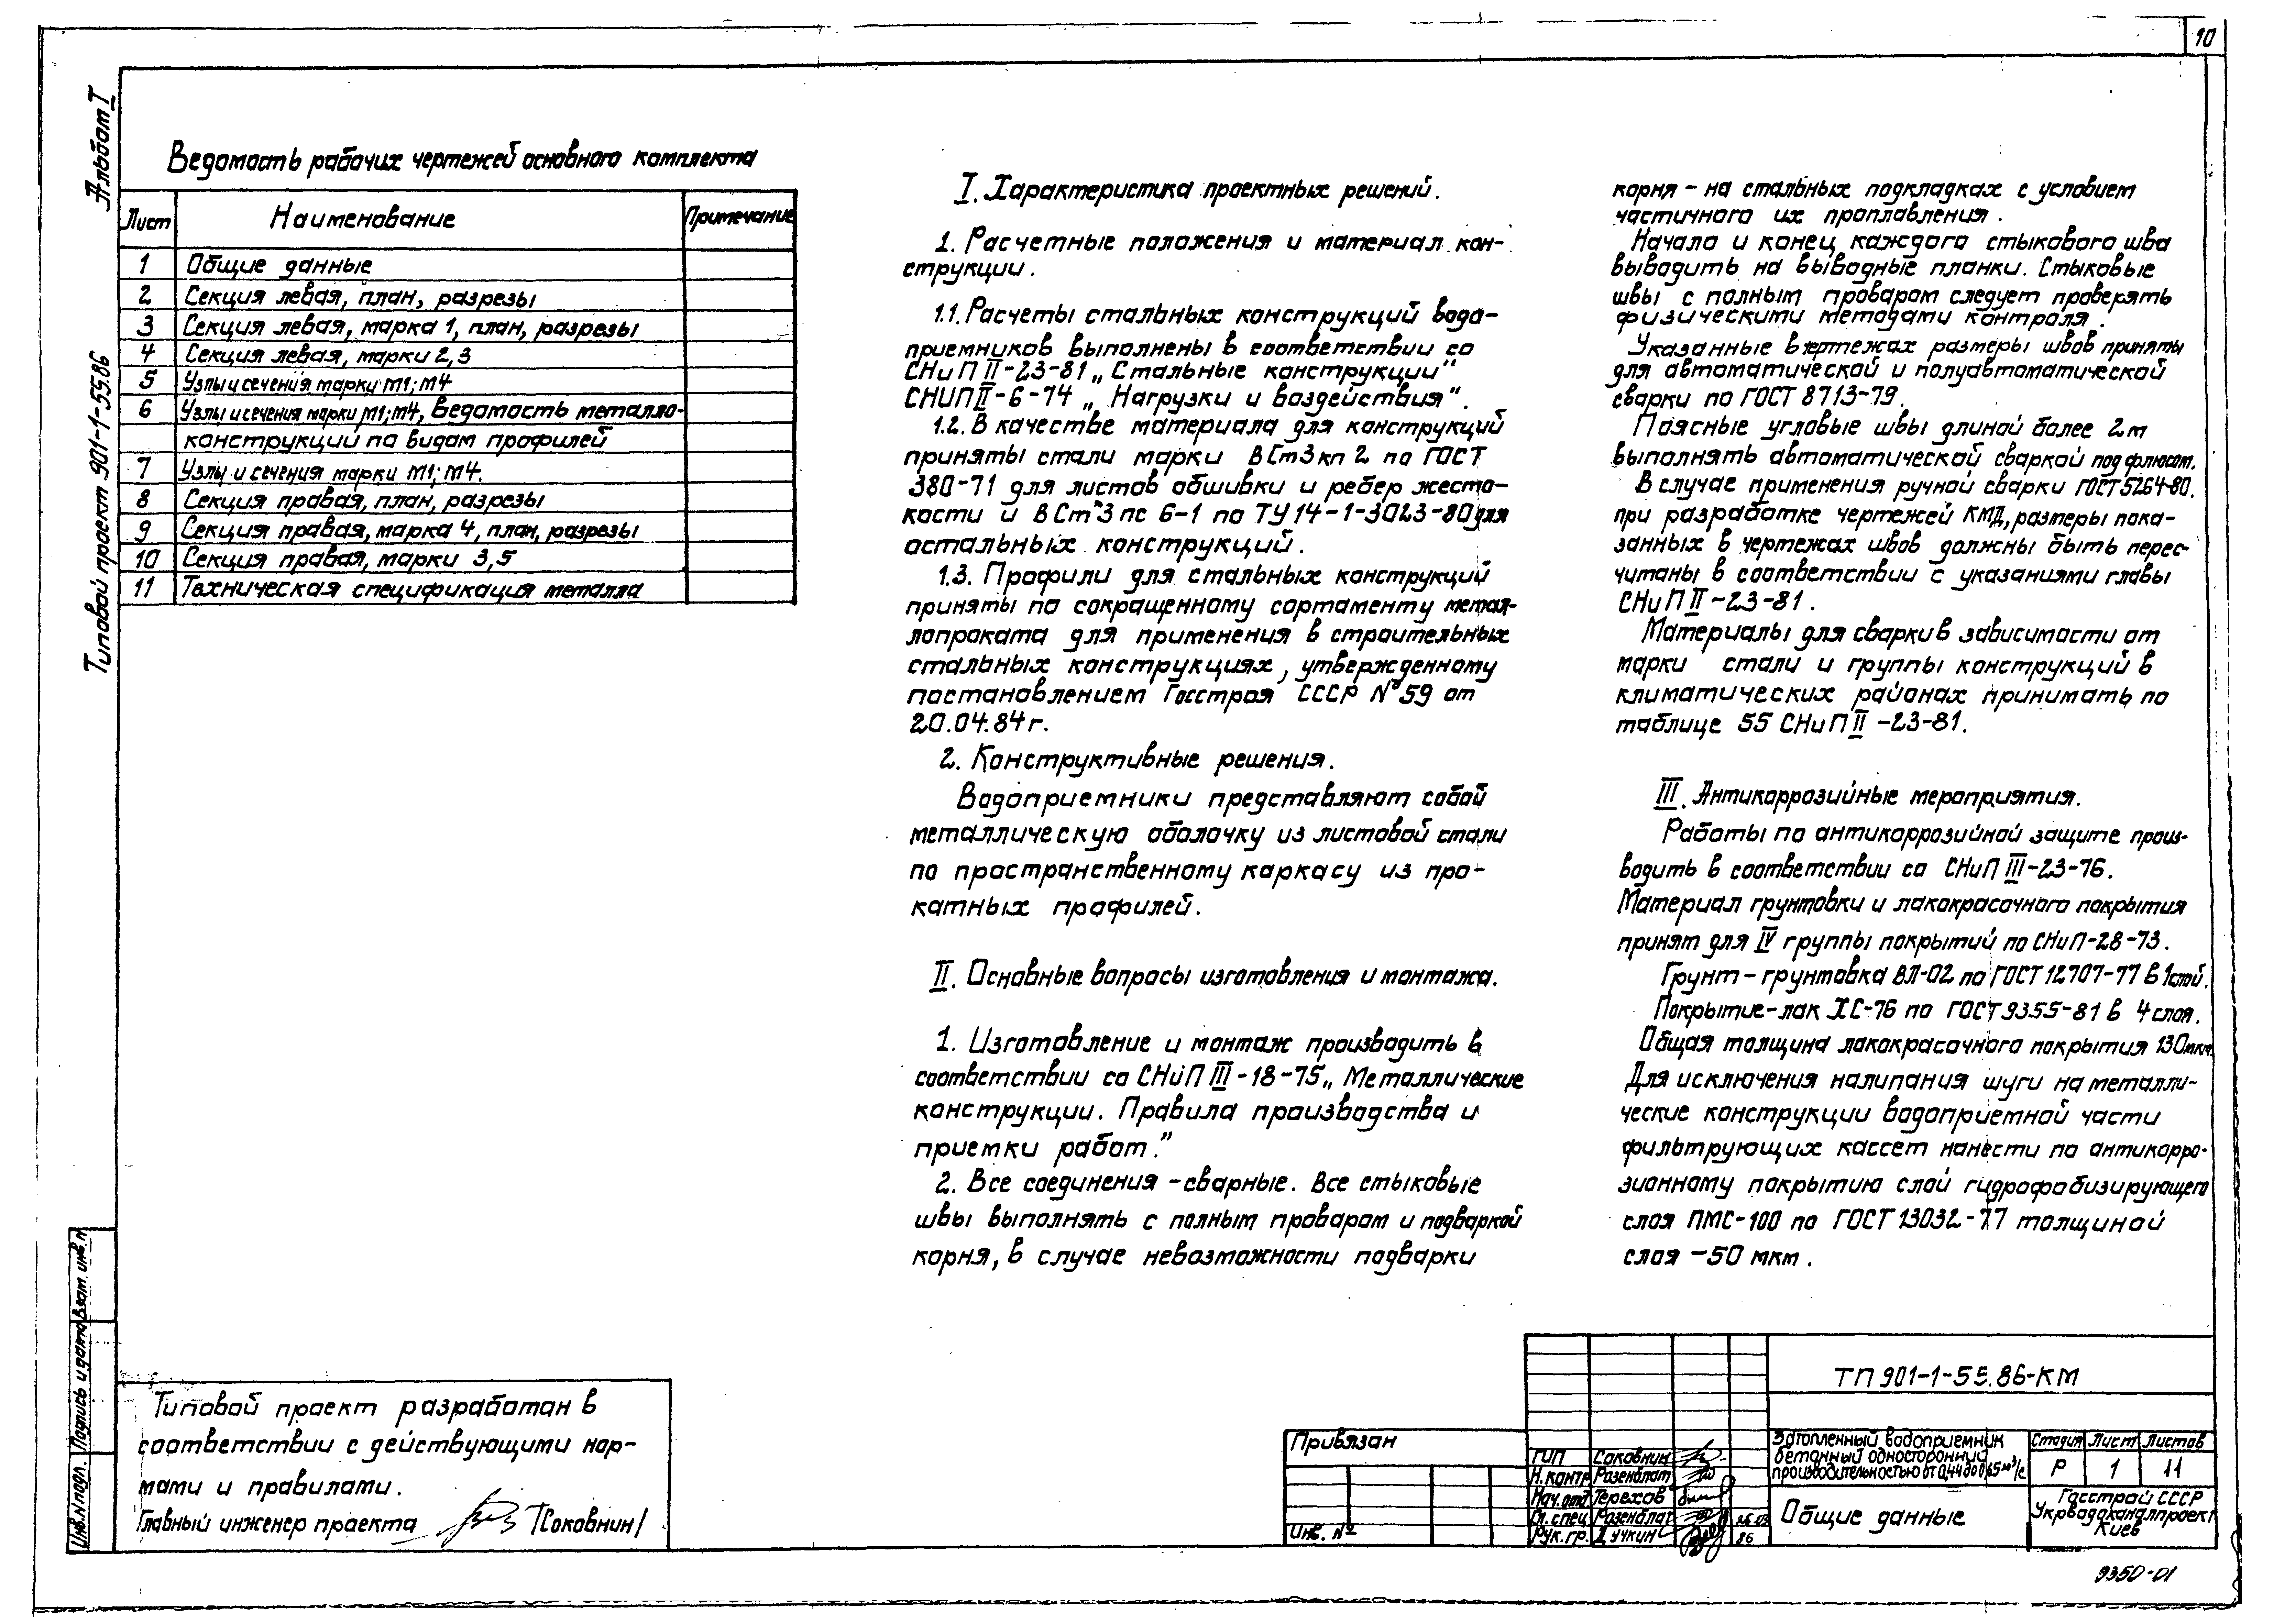 10
Альбом I
Типовой проект 901-1-55.86
Ведомость рабочих чертежей основного комплекта
Лист Наименование Примечание
1 Общие данные
2 Секция левая, план, разрезы
3 Секция левая, марка 1, план, разрезы
4 Секция левая, марки 2,3
5 Узлы и сечения марки М1; М4
6 Узлы и сечения марки М1; М4, Ведомость металло-
конструкций по видам профилей
7 Узлы и сечения марки М1; М4.
8 Секция правая, план, разрезы
9 Секция правая, марка 4, план, разрезы
10 Секция правая, марки 3,5
11 Техническая спецификация металла
I. Характеристика проектных решений.
1. Расчетные положения и материал кон-
струкции.
1.1. Расчеты стальных конструкций водо-
приемников выполнены в соответствии со
СНиП II-23-81 „Стальные конструкции"
СНИП II-6-74 „Нагрузки и воздействия".
1.2. В качестве материала для конструкций
приняты стали марки ВСт3кп2 по ГОСТ
380-71 для листов обшивки и ребер жестко-
кости и ВСт3пс 6-1 по ТУ 14-1-3023-80 для
остальных конструкций.
1.3. Профили для стальных конструкций
приняты по сокращенному сортаменту метал-
лопроката для применения в строительных
стальных конструкциях, утвержденному
постановлением Госстроя СССР №59 от
20.04.84г.
2. Конструктивные решения.
Водоприемники представляют собой
металлическую оболочку из листовой стали
по пространственному каркасу из про-
катных профилей.
II. Основные вопросы изготовления и монтажа.
1. Изготовление и монтаж производить в
соответствии со СНиП III-18-75 „Металлические
конструкции. Правила производства и
приемки работ."
2. Все соединения - сварные. Все стыковые
швы выполнять с полным проваром и подваркой
корня, в случае невозможности подварки
корня - на стальных подкладках с условием
частичного их проплавления.
Начало и конец каждого стыкового шва
выводить на выводные планки. Стыковые
швы с полным проваром следует проверять
физическими методами контроля.
Указанные в чертежах размеры швов приняты
для автоматической и полуавтоматической
сварки по ГОСТ 8713-79.
Поясные угловые швы длиной более 2м
выполнять автоматической сваркой под флюсом.
В случае применения ручной сварки ГОСТ 5264-80,
при разработке чертежей КМД, размеры пока-
занных в чертежах швов должны быть перес-
читаны в соответствии с указаниями главы
СНиП II-23-81.
Материалы для сварки в зависимости от
марки стали и группы конструкций в
климатических районах принимать по
таблице 55 СНиП II-23-81.
III. Антикоррозийные мероприятия.
Работы по антикоррозийной защите произ-
водить в соответствии со СНиП III-23-76.
Материал грунтовки и лакокрасочного покрытия
принят для IV группы покрытий по СНиП-28-73.
Грунт - грунтовка ВЛ-02 по ГОСТ 12707-77 в 1 слой.
Покрытие - лак ХС-76 по ГОСТ 9355-81 в 4 слоя.
Общая толщина лакокрасочного покрытия 130мкм.
Для исключения налипания шуги на металли-
ческие конструкции водоприемной части
фильтрующих кассет нанести по антикорро-
зионному покрытию слой гидрофобизирующего
слоя ПМС-100 по ГОСТ 13032-77 толщиной
слоя -50 мкм.
Типовой проект разработан в
соответствии с действующими нор-
мами и правилами.
Главный инженер проекта /Соковнин/
Взам. инв. №
Подпись и дата
Инв. № подл.
Привязан
Инв. №
ГИП Соковнин
Н.контр Розенблат
Нач.отд Терехов
Гл.спец Розенблат
Рук.гр. 86
ТП 901-1-55.86-КМ
Затопленный водоприемник
бетонный односторонний
производительностью от 0,44 до 0,65 м³/с
Стадия Лист Листов
Р 1 11
Общие данные
Госстрой СССР
Укрводоканалпроект
Киев
9350-01